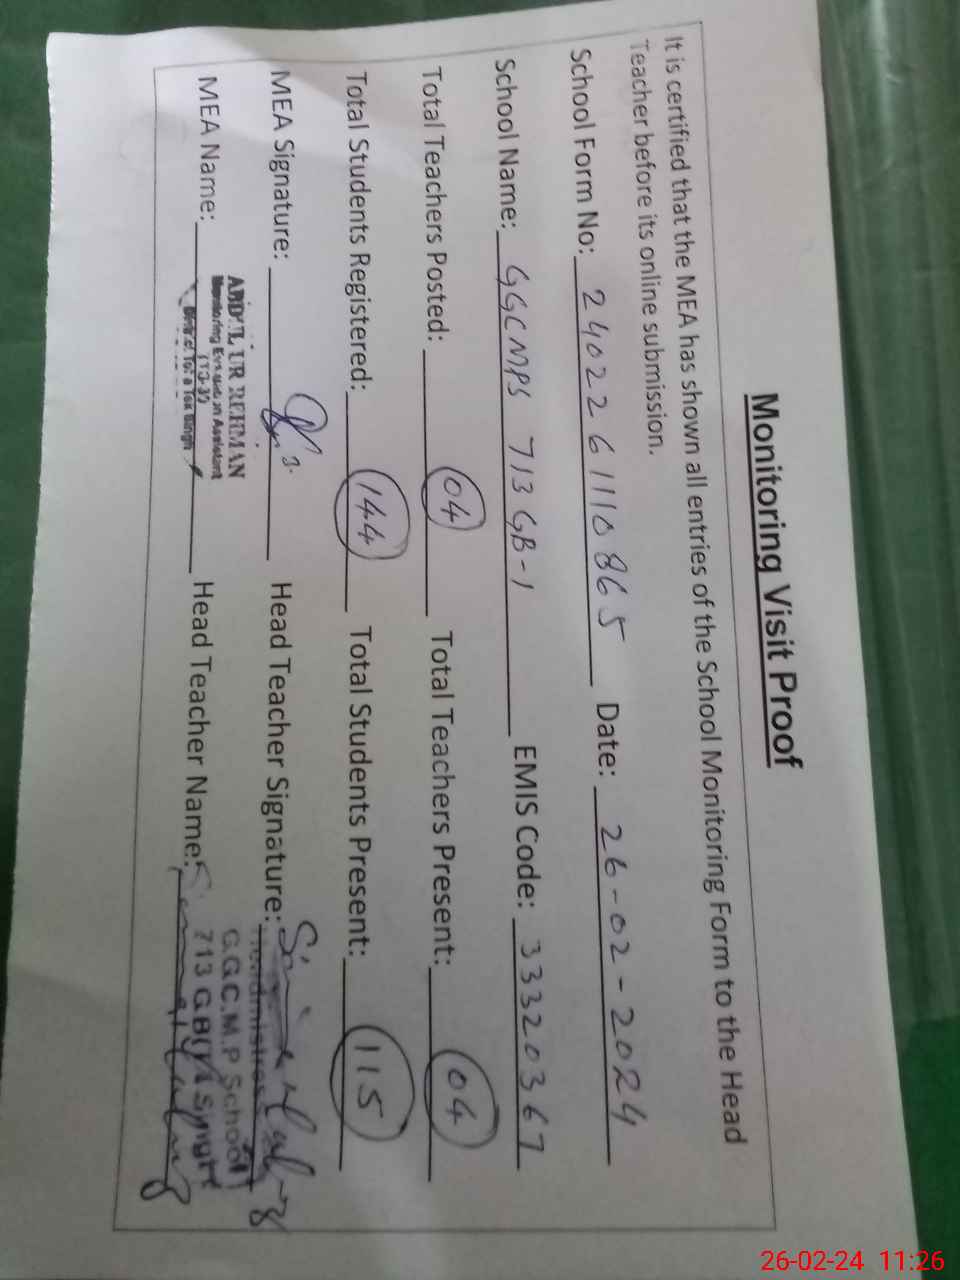 Monitoring Visit Proof
It is certified that the MEA has shown all entries of the School Monitoring Form to the Head
Teacher before its online submission.
School Form No: 240226 1110865 Date: 26-02-2024
School Name: GGCMPS 713 GB-1 EMIS Code: 33320367
Total Teachers Posted: 04 Total Teachers Present: 04
Total Students Registered: 144 Total Students Present: 115
MEA Signature: Head Teacher Signature:
MEA Name: Head Teacher Name:
ABDUL UR REHMAN
Monitoring Evaluation Assistant
Headmistress
G.G.C.M.P School
713 GB
26-02-24 11:26